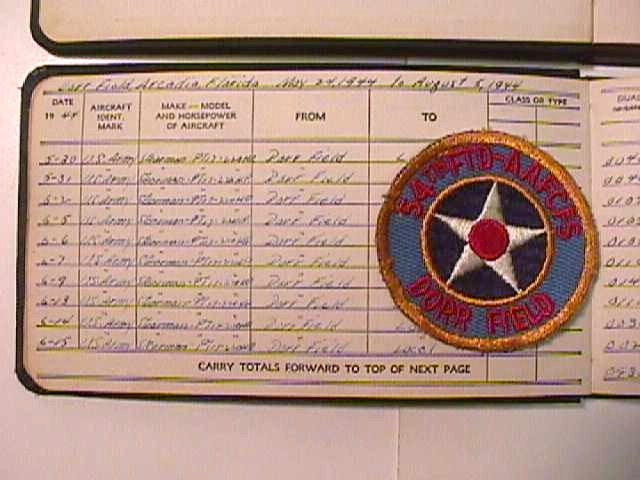 Dorr Field Arcadia, Florida May 24, 1944 to August 5, 1944
DATE
19 44
AIRCRAFT
IDENT.
MARK
MAKE — MODEL
AND HORSEPOWER
OF AIRCRAFT
FROM
TO
CLASS OR TYPE
5-30 U.S. Army Stearman-PT17-220HP Dorr Field
5-31 U.S. Army Stearman-PT17-220HP Dorr Field
6-2 U.S. Army Stearman-PT17-220HP Dorr Field
6-5 U.S. Army Stearman-PT17-220HP Dorr Field
6-6 U.S. Army Stearman-PT17-220HP Dorr Field
6-7 U.S. Army Stearman-PT17-220HP Dorr Field
6-9 U.S. Army Stearman-PT17-220HP Dorr Field
6-13 U.S. Army Stearman-PT17-220HP Dorr Field
6-14 U.S. Army Stearman-PT17-220HP Dorr Field
6-15 U.S. Army Stearman-PT17-220HP Dorr Field Local
CARRY TOTALS FORWARD TO TOP OF NEXT PAGE
54TH FTD-AAFCFS
DORR FIELD